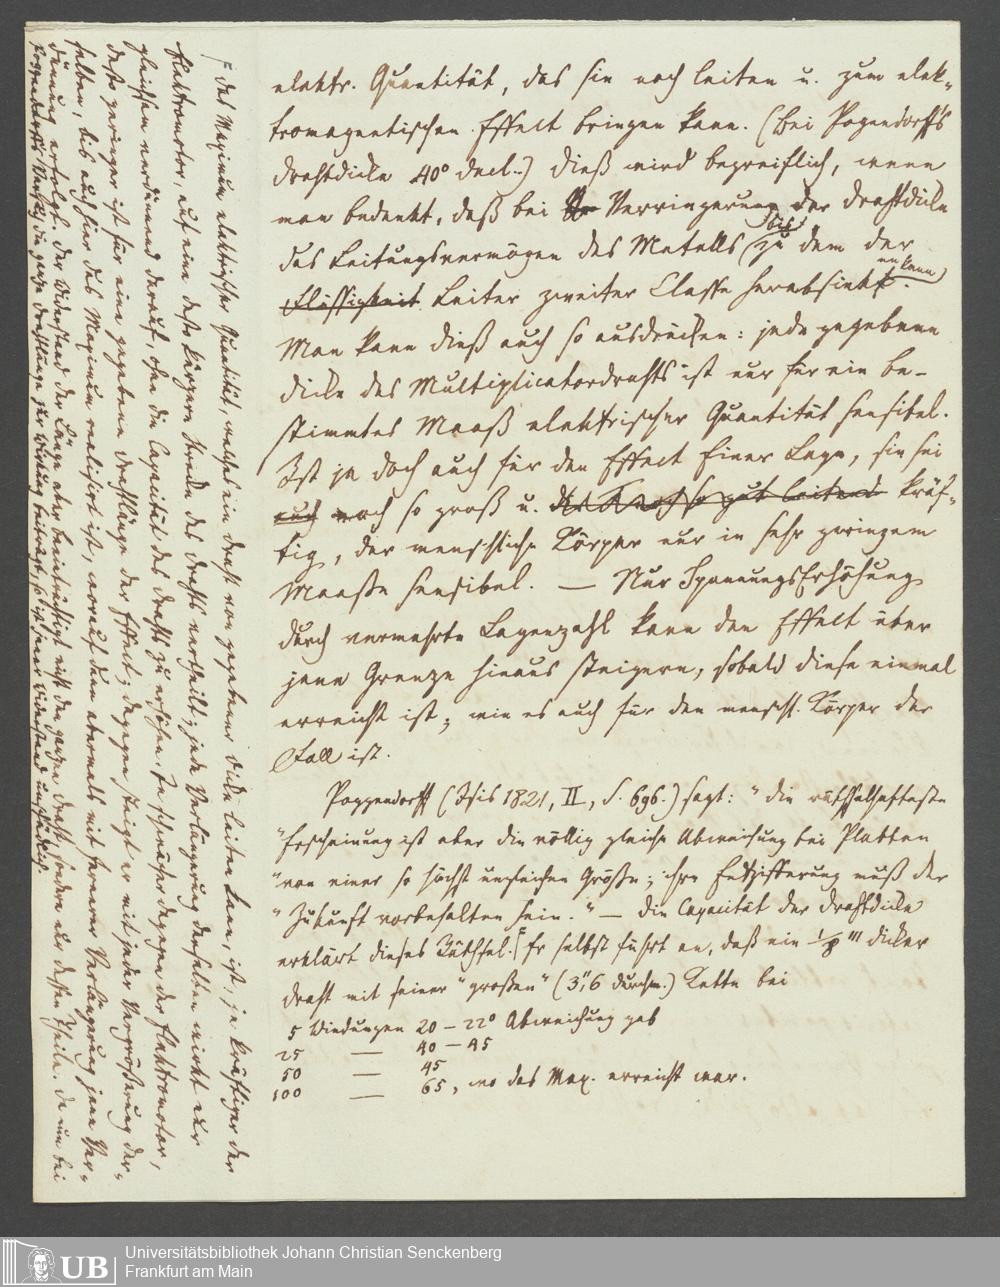 elektr. Quantität, das sie noch leiten u. zum elek-
tromagnetischen Effekt bringen kann. (Bei Pogendorff's
Drahtdicke 40° decl.) Dieß wird begreiflich, wenn
man bedenkt, daß bei Verringerung der Drahtdicke
das Leitungsvermögen des Metalls bis zu dem der
Flüssigkeit Leiter zweiter Classe herabsinken kann.
Man kann dieß auch so ausdrücken: jede gegebene
Dicke des Multiplicatordrahts ist nur für ein be-
stimmtes Maaß elektrischer Quantität sensibel.
Ist ja doch auch für den Effect Einer Lage, sie sei
auch noch so groß u. noch so gut leitend kräf-
tig, der menschliche Körper nur in sehr geringem
Maaße sensibel. — Nur SpannungsErhöhung
durch vermehrte Lagenzahl kann den Effekt über
jene Grenze hinaus steigern, sobald diese einmal
erreicht ist; wie es auch für den menschl. Körper der
Fall ist.
Poggendorff (Isis 1821, II, S. 696.) sagt: "die räthselhafteste
"Erscheinung ist aber die völlig gleiche Abweichung bei Platten
"von einer so höchst ungleichen Größe; ihre Entzifferung muß der
"Zukunft vorbehalten sein." — Die Capacität der Drahtdicke
erklärt dieses Räthsel. Er selbst führt an, daß ein 1/8''' dicker
Draht mit seiner "großen" (3",6 Durchm.) Kette bei
5 Windungen 20 – 22° Abweichung gab
25 — 40 – 45
50 — 45
100 — 65, wo das Max. erreicht war.
Das Maximum elektrischer Quantität, welches ein Draht von gegebener Dicke leiten kann, ist, je kräftiger der
Elektromotor, auf eine desto kürzere Strecke des Drahts vertheilt; jede Verlängerung desselben wirkt nur
gleichsam verdünnend darauf, ohne die Capacität des Drahts zu erhöhen. Je schwächer dagegen der Elektromotor,
desto geringer ist für eine gegebene Drahtlänge der Effect; dagegen steigt er mit jeder Vergrößerung der-
selben, bis auch hier das Maximum realisirt ist, worauf dann abermals mit fernerer Verlängerung jene Ver-
dünnung erfolgt. Der Widerstand der Länge aber beeinträchtigt nicht den ganzen Draht, sondern nur dessen Theile. Da nun bei
Poggendorffs die ganze Drahtlänge zur Wirkung beiträgt, so ist jener Widerstand unschädlich.
Universitätsbibliothek Johann Christian Senckenberg
Frankfurt am Main
UB